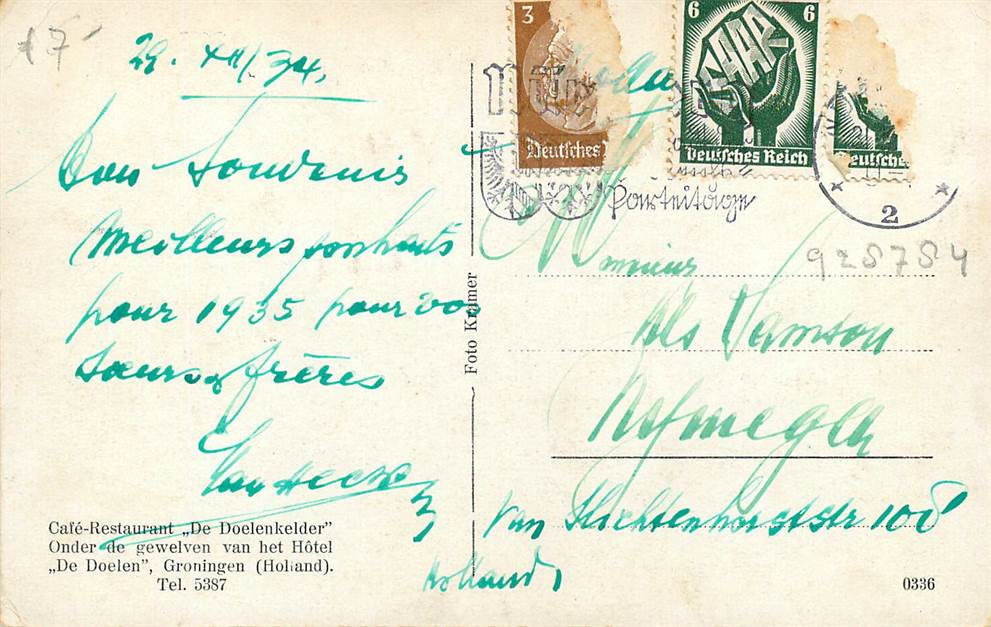 17-
29. XII/34.
Bon Souvenir
Meilleurs souhaits
pour 1935 pour vos
Sœurs & frères
Café-Restaurant „De Doelenkelder”
Onder de gewelven van het Hôtel
„De Doelen”, Groningen (Holland).
Tel. 5387
Foto Kramer
3
Deutsches
6 6
SAAR
Deutsches Reich
eutsche
Parteitage
2
928784
Monsieur
Els Vamson
Nijmegen
Van Slichtenhorststr 100
Holland
0336